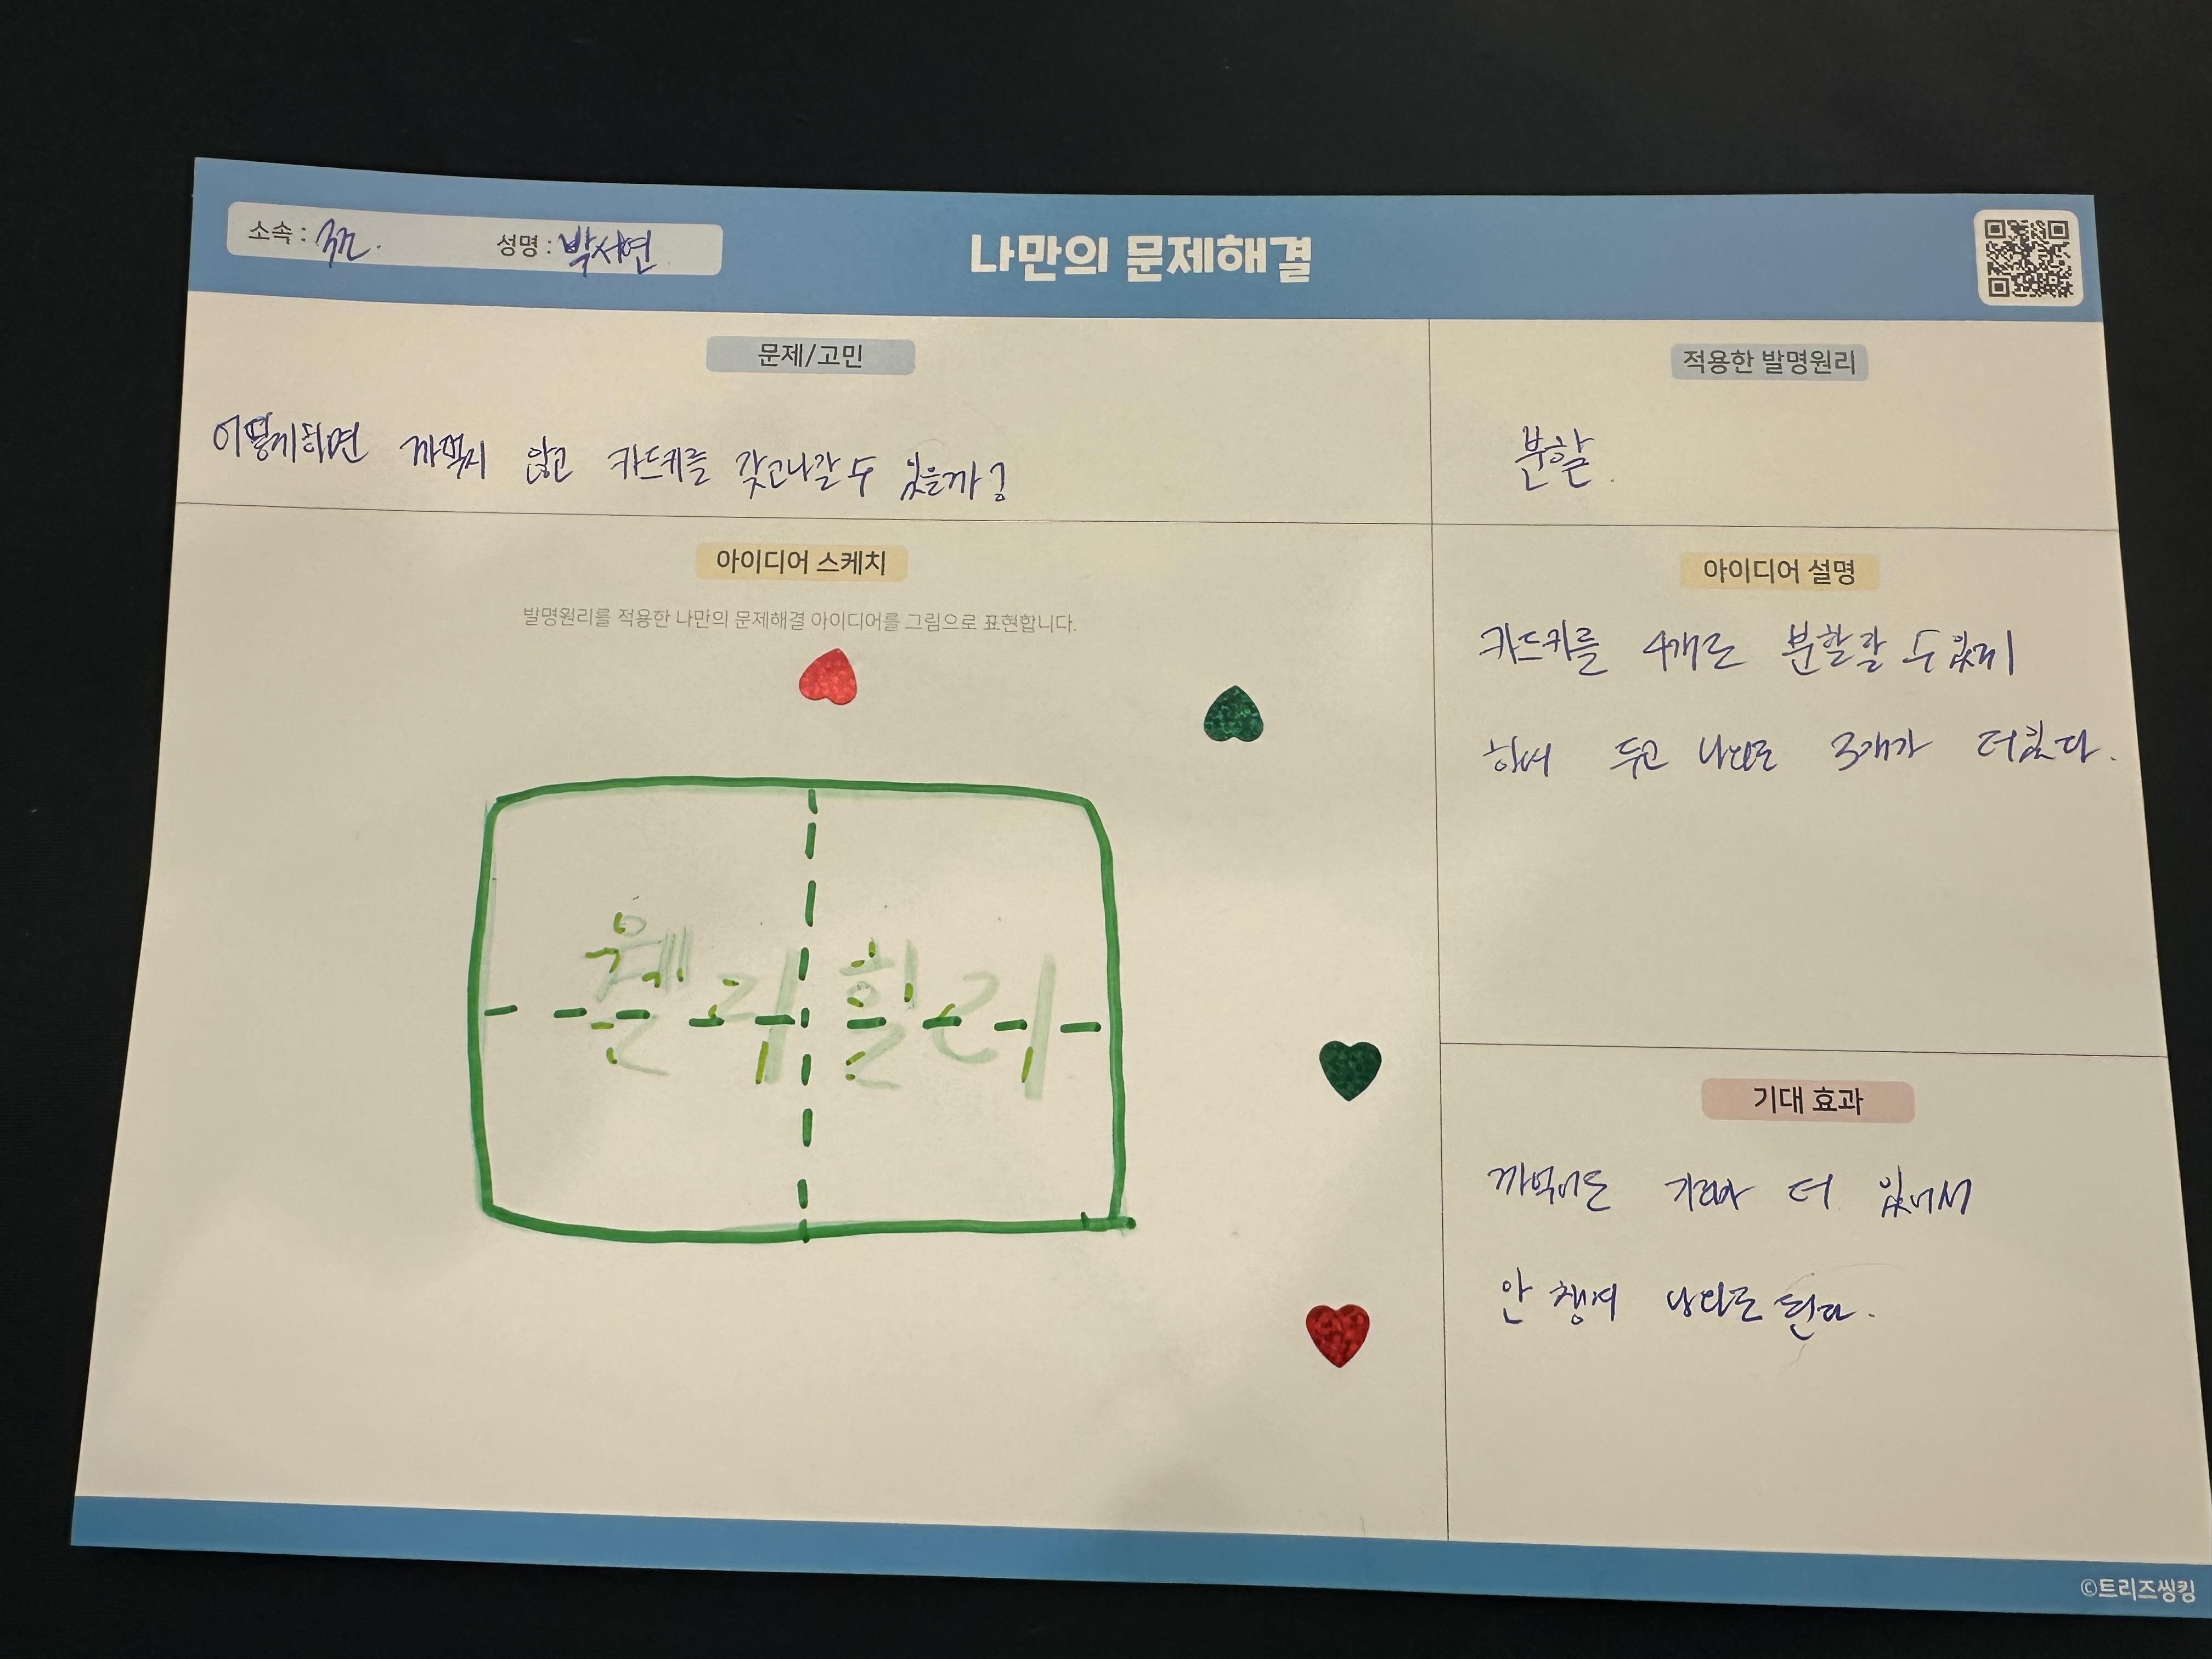 소속 : 3조.
성명 : 박서연
나만의 문제해결
문제/고민
어떻게하면 까먹지 않고 카드키를 갖고나갈 수 있을까?
적용한 발명원리
분할.
아이디어 스케치
발명원리를 적용한 나만의 문제해결 아이디어를 그림으로 표현합니다.
웰리힐리
아이디어 설명
카드키를 4개로 분할할 수 있게
해서 두고 나와도 3개가 더있다.
기대 효과
까먹어도 기회가 더 있어서
안 챙겨 나와도 된다.
©트리즈씽킹